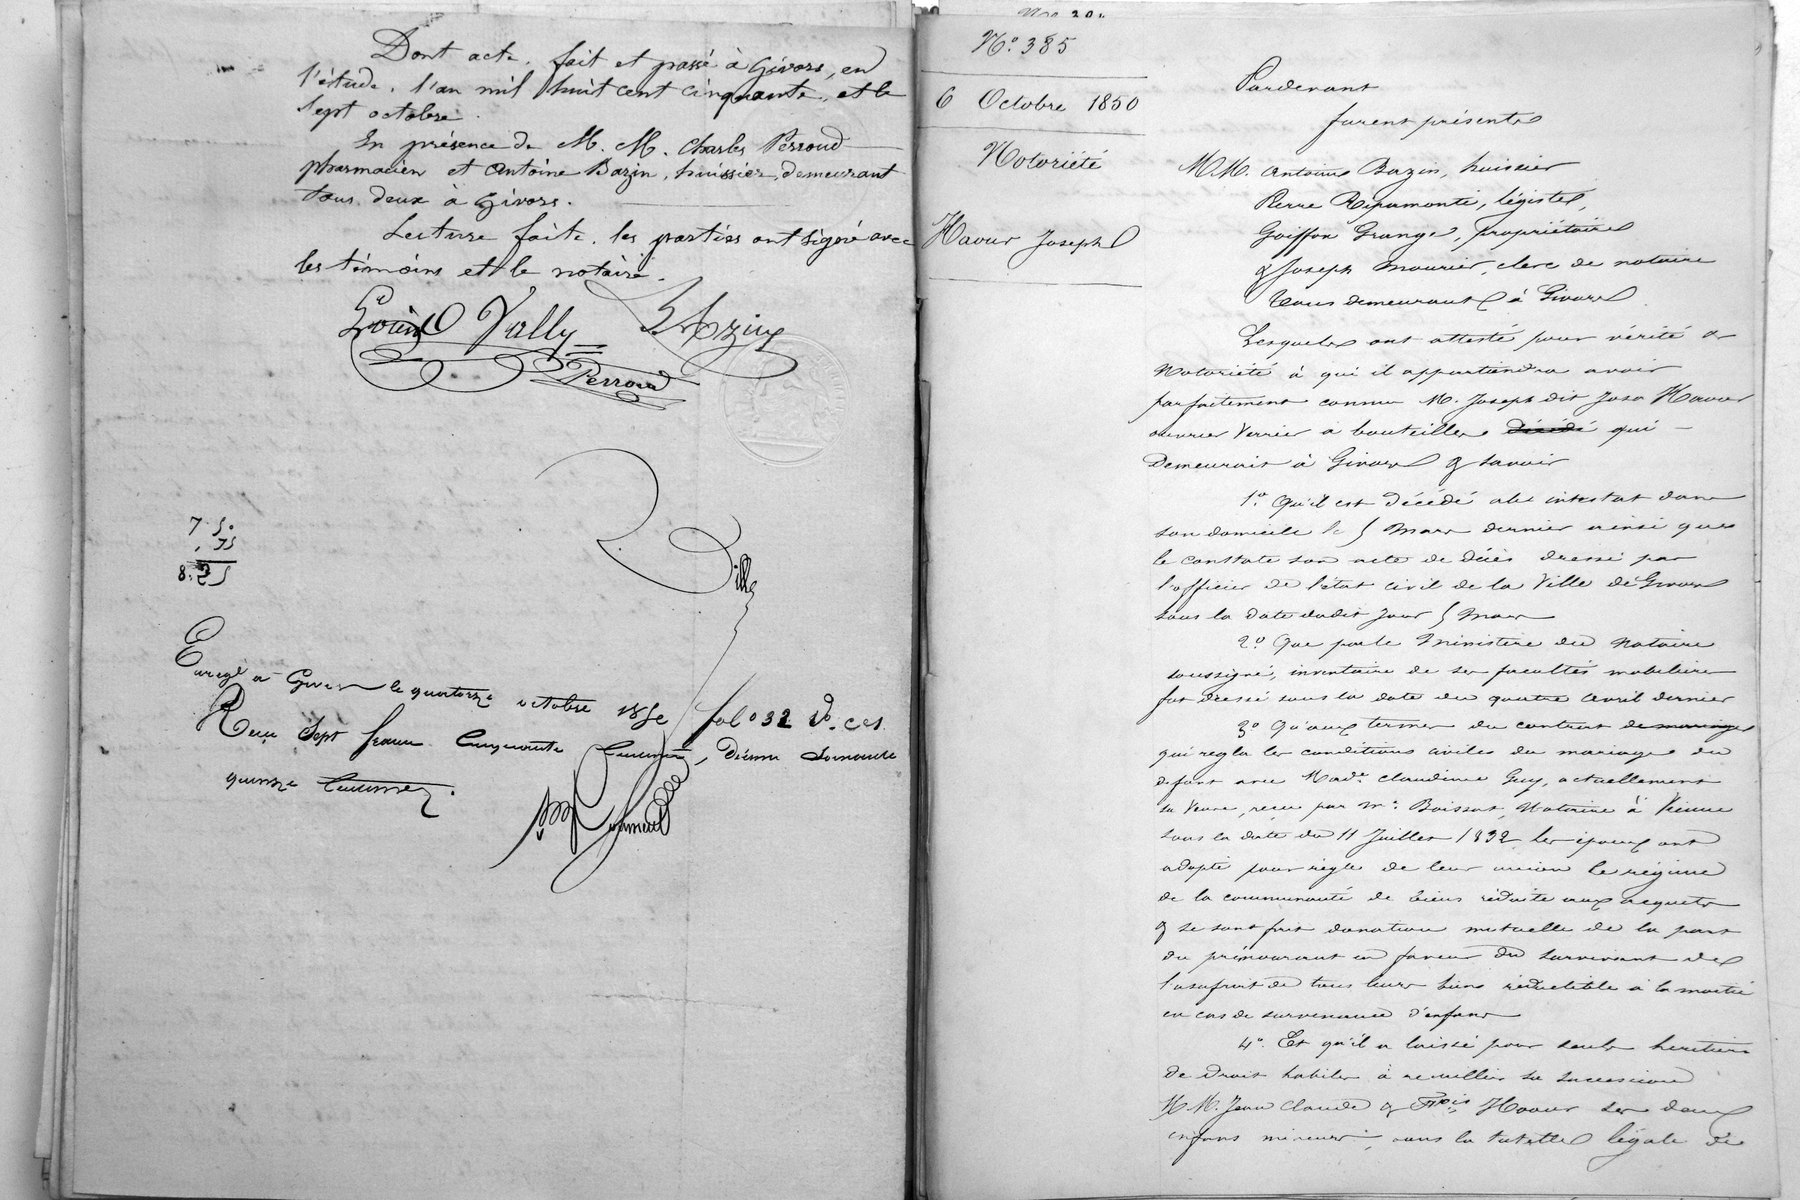 Dont acte. fait et passé à Givors, en
l'étude. l'an mil huit cent cinquante, et le
sept octobre.
En présence de M. M. Charles Perroud
pharmacien et Antoine Bazin, huissier, demeurant
tous deux à Givors.
Lecture faite. les parties ont signé avec
les témoins et le notaire.
Vally Bazin
Perroud
7. 50
. 75
8. 25
Enregé à Givors le quatorze octobre 1850 fol° 32 v°. c. 1.
Reçu sept francs cinquante centimes, Décime soixante
quinze centimes.
N° 385
6 Octobre 1850
Notoriété
Havur Joseph
Pardevant
furent présents
M.M. Antoine Bazin, huissier
Pierre Ripamonti, légiste,
Goiffon Grange, propriétaire
& Joseph Mourier, clerc de notaire
tous demeurant à Givors
Lesquels ont attesté pour vérité &
Notoriété à qui il appartiendra avoir
parfaitement connu M. Joseph dit José
ouvrier verrier à bouteilles décédé qui
Demeurait à Givors & savoir
1° Qu'il est décédé ab intestat dans
son domicile le 5 Mars dernier ainsi que
le constate son acte de décès dressé par
l'officier de l'état civil de la Ville de Givors
sous la date dudit jour 5 Mars
2° Que par le Ministère du Notaire
soussigné, inventaire de ses facultés mobilières
fut dressé sous la date du quatre avril dernier
3° Qu'aux termes du contrat de mariage
qui régla les conditions civiles du mariage du
défunt avec Made Claudine Guy, actuellement
sa veuve, reçu par Me Boissat, Notaire à Vienne
sous la date du 11 Juillet 1832, les époux ont
adopté pour règle de leur union le régime
de la communauté de biens réduite aux acquets
& se sont fait donation mutuelle de la part
du prémourant en faveur du survivant de
l'usufruit de tous leurs biens réductible à la moitié
en cas de survenance d'enfans
4° Et qu'il a laissé pour seuls héritiers
de droit habiles à recueillir sa succession
M.M. Jean Claude & Fçois ses deux
enfans mineurs, sous la tutelle légale de